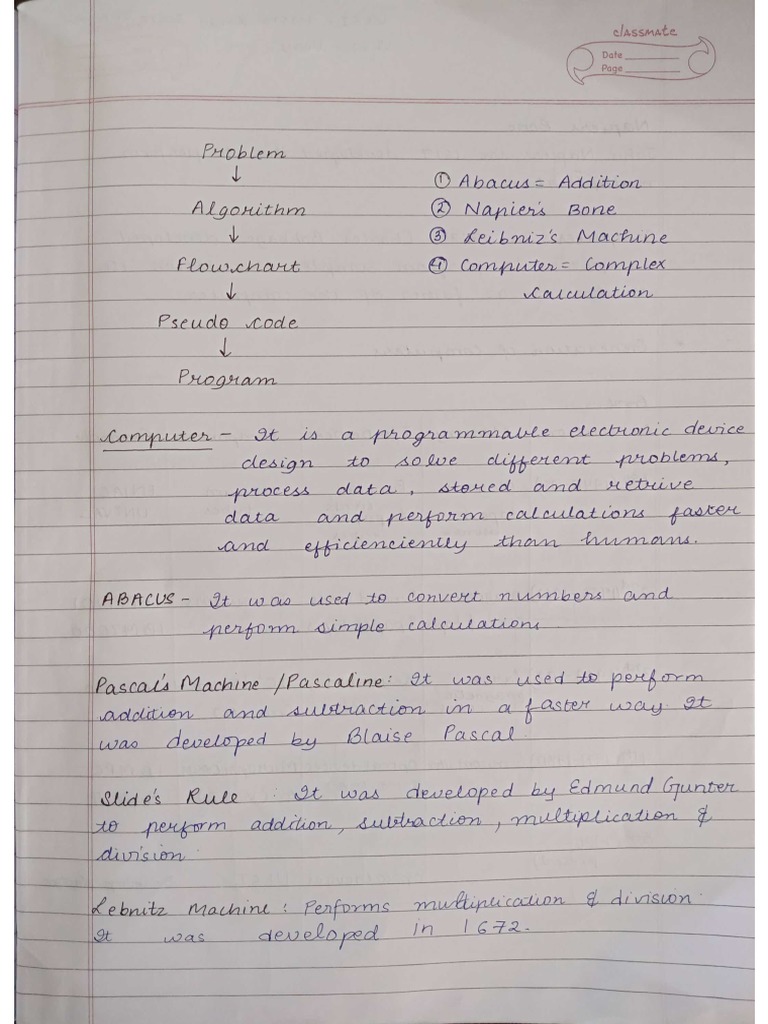 classmate
Date
Page
Problem
↓
Algorithm
↓
Flowchart
↓
Pseudo code
↓
Program
① Abacus = Addition
② Napier's Bone
③ Leibniz's Machine
④ Computer = Complex
Calculation
Computer - It is a programmable electronic device
design to solve different problems,
process data, stored and retrive
data and perform calculations faster
and efficienciently than humans.
ABACUS - It was used to convert numbers and
perform simple calculations
Pascal's Machine /Pascaline: It was used to perform
addition and subtraction in a faster way It
was developed by Blaise Pascal.
Slide's Rule : It was developed by Edmund Gunter
to perform addition, subtraction, multiplication &
division.
Lebnitz Machine : Performs multiplication & division.
It was developed in 1672.